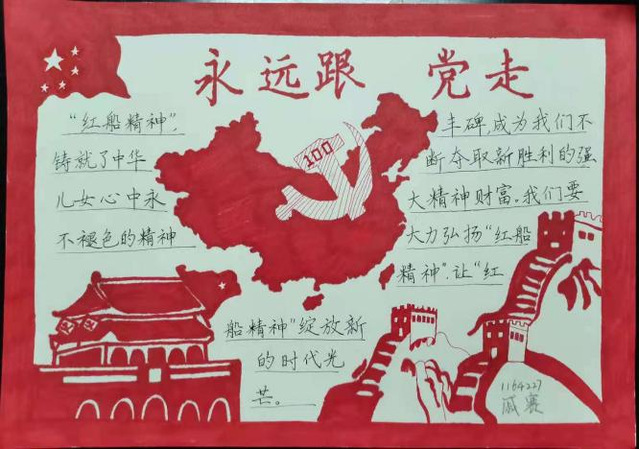 永远跟 党走
100
“红船精神”，
铸就了中华
儿女心中永
不褪色的精神
丰碑，成为我们不
断夺取新胜利的强
大精神财富。我们要
大力弘扬“红船
精神”，让“红
船精神”绽放新
的时代光
芒。
1164227